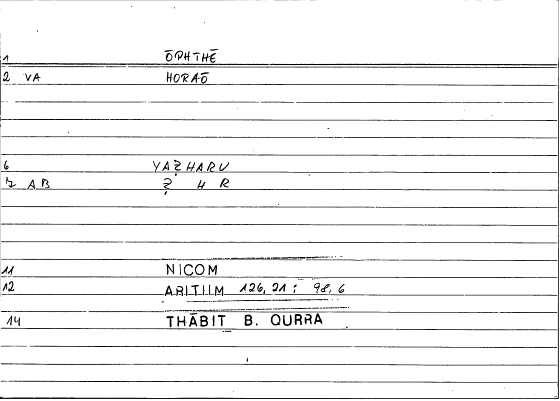 1 ŌPHTHĒ
2 VA HORAŌ
6 YAẒHARU
7 AB Ẓ H R
11 NICOM
12 ARITHM 126,21 : 98,6
14 THĀBIT B. QURRA